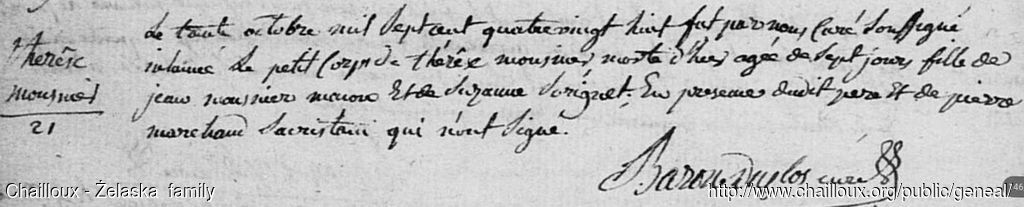 thérèse
mousnier
21
Le trente octobre mil sept cent quatre vingt huit fut par nous Curé Soussigné
inhumé Le petit Corps de thérèse mousnier morte d'hier agée de sept jours fille de
jean mousnier macon Et de Suzanne Sorignet. En presence dudit pere Et de pierre
marchand Sacristain qui n'ont Signé.
Baron curé
Chailloux - Želaska family
http://www.chailloux.org/public/geneal/
46